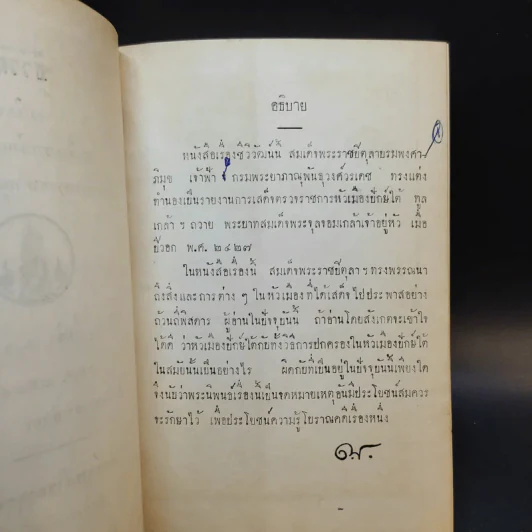 อธิบาย
หนังสือเรื่องชีวิวัฒน์นี้ สมเด็จพระราชปิตุลาบรมพงศา-
ภิมุข เจ้าฟ้า ฯ กรมพระยาภาณุพันธุวงศ์วรเดช ทรงแต่ง
ทำนองเป็นรายงานการเสด็จตรวจราชการหัวเมืองปักษ์ใต้ ทูล
เกล้า ฯ ถวาย พระบาทสมเด็จพระจุลจอมเกล้าเจ้าอยู่หัว เมื่อ
ปีวอก พ.ศ. ๒๔๒๗
ในหนังสือเรื่องนี้ สมเด็จพระราชปิตุลา ฯ ทรงพรรณนา
ถึงสิ่งและการต่าง ๆ ในหัวเมืองที่ได้เสด็จไปประพาสอย่าง
ถ้วนถี่พิสดาร ผู้อ่านในปัจจุบันนี้ ถ้าอ่านโดยสังเกตจะเข้าใจ
ได้ดี ว่าหัวเมืองปักษ์ใต้กับทั้งวิธีการปกครองในหัวเมืองปักษ์ใต้
ในสมัยนั้นเป็นอย่างไร ผิดกับที่เป็นอยู่ในปัจจุบันนี้เพียงใด
จึงนับว่าพระนิพนธ์เรื่องนี้เป็นจดหมายเหตุอันมีประโยชน์สมควร
จะรักษาไว้ เพื่อประโยชน์ความรู้โบราณคดีเรื่องหนึ่ง